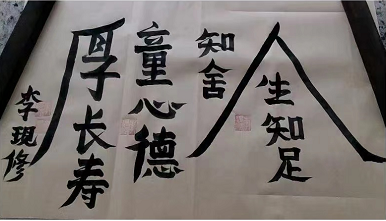 人生知足
知舍
童心德
厚长寿
李现修